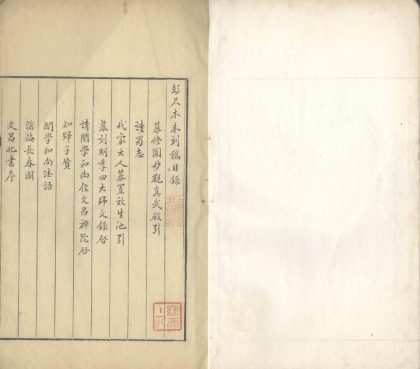 彭尺木未刻稿目錄
募修圓妙觀真武殿引
讀蜀志
代家大人募置放生池引
募刻明季四大師文錄啓
請聞學和尚住文昌禪院啓
知歸子贊
聞學和尚法語
論語長春圖
文昌化書序